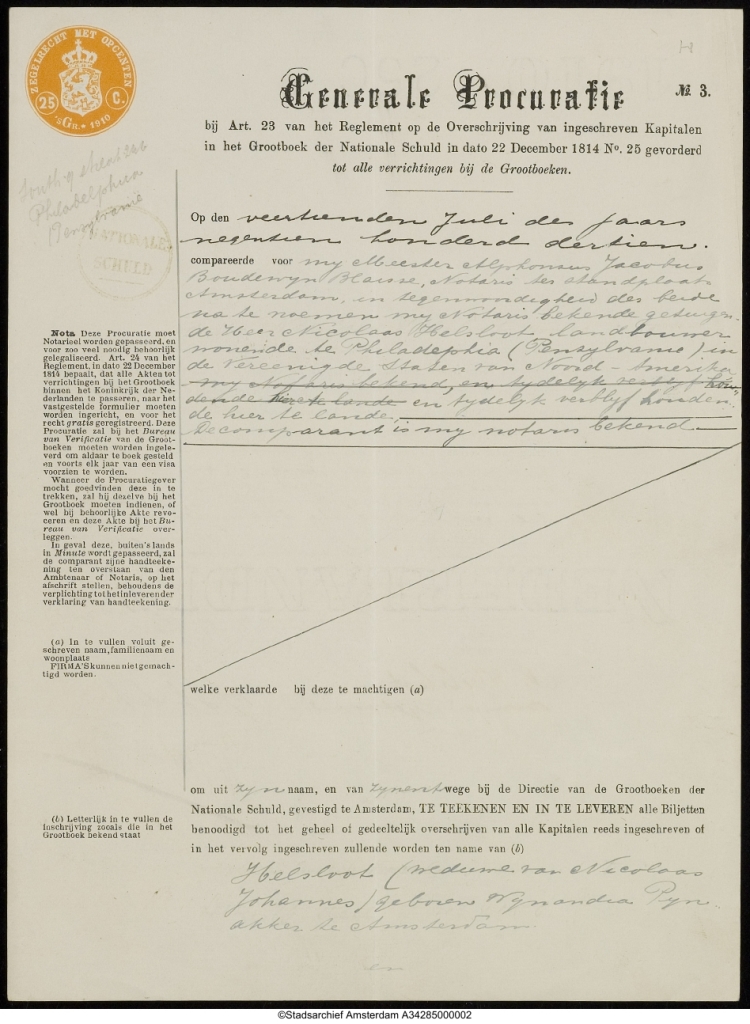 ZEGELRECHT MET OPCENTEN
25 C.
'sGR. 1910
Generale Procuratie
№ 3.
bij Art. 23 van het Reglement op de Overschrijving van ingeschreven Kapitalen
in het Grootboek der Nationale Schuld in dato 22 December 1814 No. 25 gevorderd
tot alle verrichtingen bij de Grootboeken.
South 9 street 266
Philadelphia
Pensylvanie
NATIONALE
SCHULD
Op den veertienden Juli des jaars
negentien honderd dertien.
compareerde voor my Meester Alphonsus Jacobus
Boudewyn Blaisse, Notaris ter standplaats
Amsterdam, in tegenwoordigheid der beide
na te noemen my Notaris bekende getuigen
de Heer Nicolaas Helsloot landbouwer
wonende te Philadelphia (Pensylvanie) in
de Vereenigde Staten van Noord-Amerika
my Notaris bekend, en tydelyk verblyf hou-
dende hier te lande en tydelyk verblyf houden
de hier te lande.
De comparant is my notaris bekend
Nota Deze Procuratie moet
Notarieel worden gepasseerd, en
voor zoo veel noodig behoorlijk
gelegaliseerd. Art. 24 van het
Reglement, in dato 22 December
1814 bepaalt, dat alle Akten tot
verrichtingen bij het Grootboek
binnen het Koninkrijk der Ne-
derlanden te passeren, naar het
vastgestelde formulier moeten
worden ingericht, en voor het
recht gratis geregistreerd. Deze
Procuratie zal bij het Bureau
van Verificatie van de Groot-
boeken moeten worden ingele-
verd om aldaar te boek gesteld
en voorts elk jaar van een visa
voorzien te worden.
Wanneer de Procuratiegever
mocht goedvinden deze in te
trekken, zal hij dezelve bij het
Grootboek moeten indienen, of
wel bij behoorlijke Akte revo-
ceren en deze Akte bij het Bu-
reau van Verificatie over-
leggen.
In geval deze, buiten's lands
in Minute wordt gepasseerd, zal
de comparant zijne handteeke-
ning ten overstaan van den
Ambtenaar of Notaris, op het
afschrift stellen, behoudens de
verplichting tot het inleveren der
verklaring van handteekening.
(a) In te vullen voluit ge-
schreven naam, familienaam en
woonplaats
FIRMA'S kunnen niet gemach-
tigd worden.
welke verklaarde bij deze te machtigen (a)
om uit zyn naam, en van zynentwege bij de Directie van de Grootboeken der
Nationale Schuld, gevestigd te Amsterdam, TE TEEKENEN EN IN TE LEVEREN alle Biljetten
benoodigd tot het geheel of gedeeltelijk overschrijven van alle Kapitalen reeds ingeschreven of
in het vervolg ingeschreven zullende worden ten name van (b)
(b) Letterlijk in te vullen de
inschrijving zooals die in het
Grootboek bekend staat
Helsloot (weduwe van Nicolaas
Johannes) geboren Wynandia Pyn-
akker te Amsterdam.
en
©Stadsarchief Amsterdam A34285000002